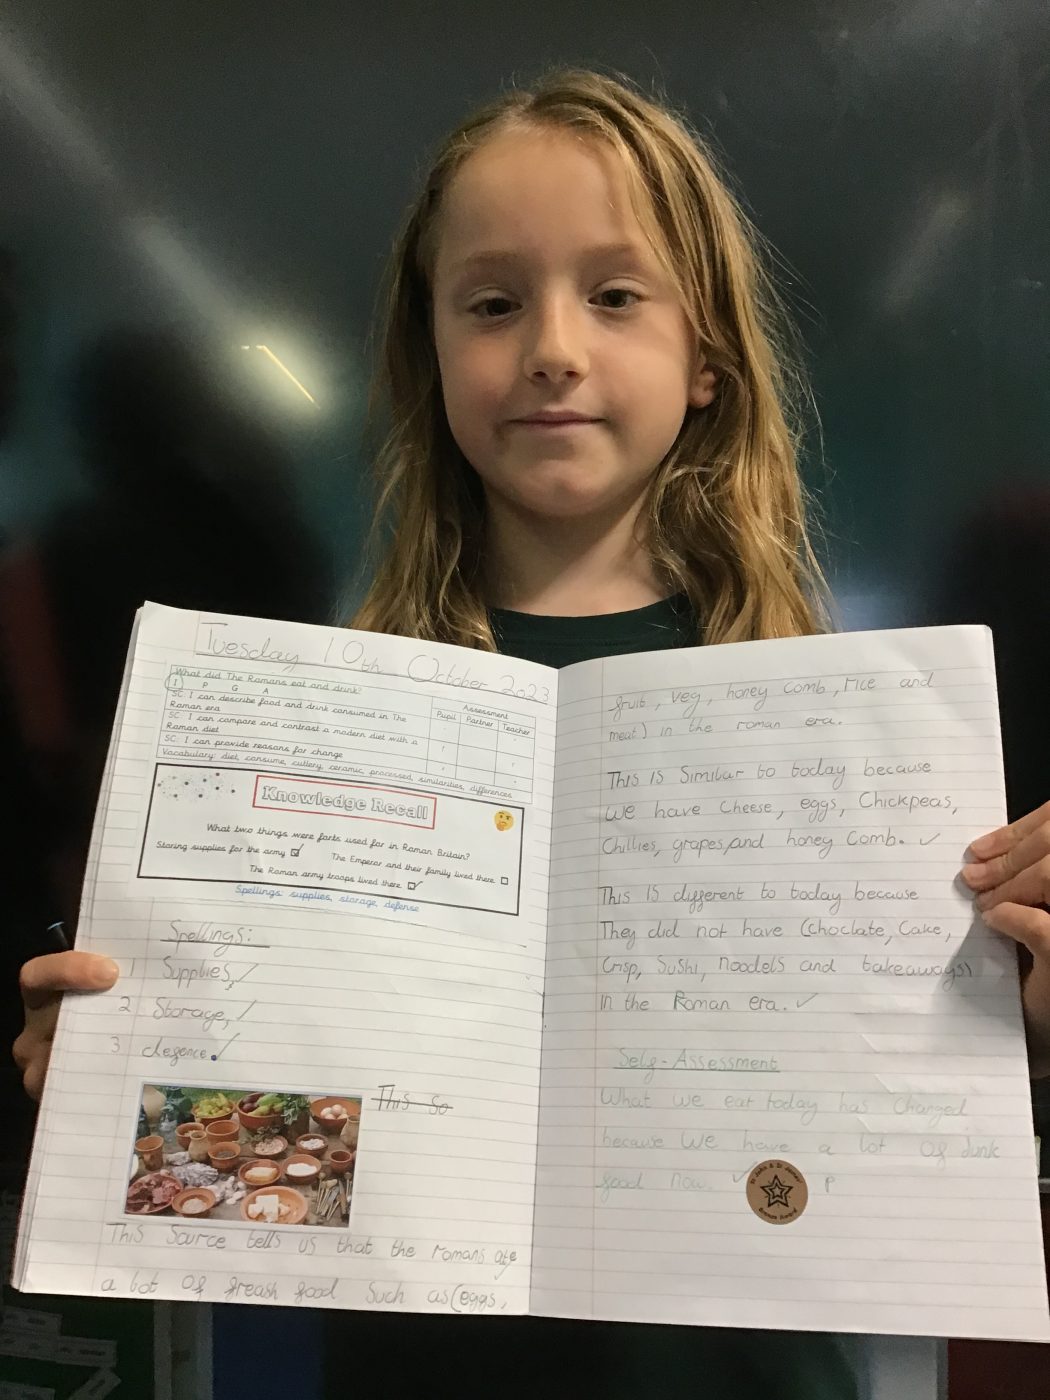 Tuesday 10th October 2023
What did The Romans eat and drink?
I P G A
Assessment
Pupil Partner Teacher
SC: I can describe food and drink consumed in The
Roman era
SC: I can compare and contrast a modern diet with a
Roman diet
SC: I can provide reasons for change
Vocabulary: diet, consume, cutlery, ceramic, processed, similarities, differences
Knowledge Recall
What two things were forts used for in Roman Britain?
Storing supplies for the army ☑ The Emperor and their family lived there ☐
The Roman army troops lived there ☑
Spellings: supplies, storage, defense
Spellings:
1 Supplies,
2 Storage,
3 defence.
This so
This Source tells us that the romans ate
a lot of freash food Such as (eggs,
fruit, veg, honey comb, rice and
meat) in the roman era.
This is Similar to today because
we have Cheese, eggs, Chickpeas,
Chillies, grapes, and honey Comb.
This is different to today because
They did not have (choclate, Cake,
Crisp, Sushi, noodels and takeaways)
in the Roman era.
Self-Assessment
What we eat today has changed
because we have a lot of junk
food now.
P
Bronze Award